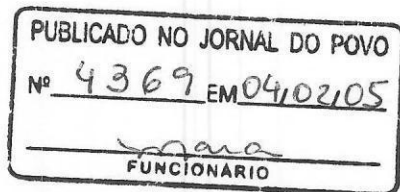 PUBLICADO NO JORNAL DO POVO
Nº 4369 EM 04,02,05
Mara
FUNCIONÁRIO